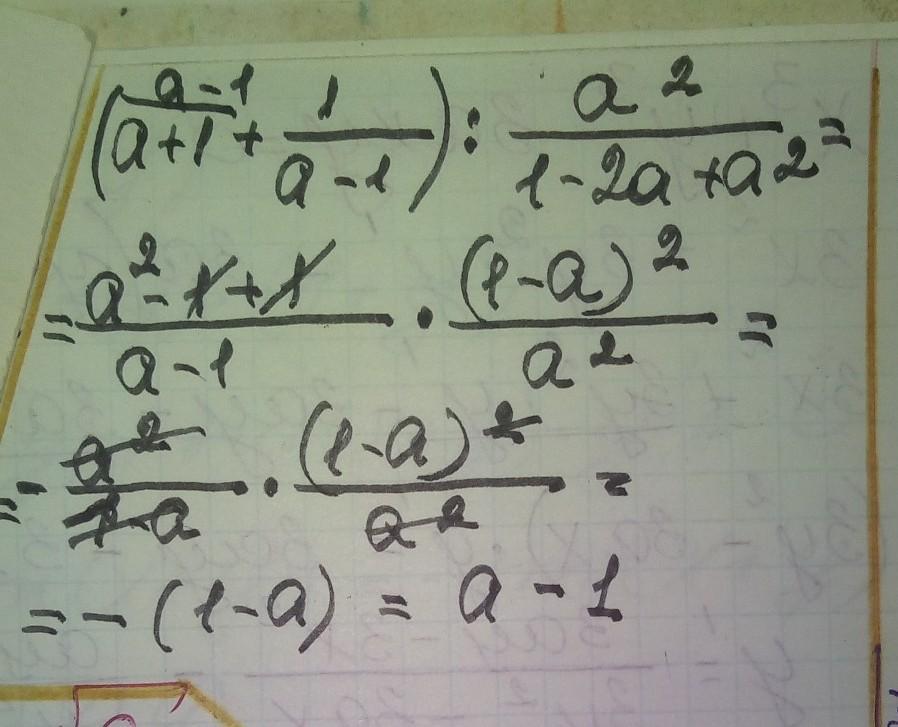 (\frac{a-1}{a+1} + \frac{1}{a-1}) : \frac{a^2}{1-2a+a^2} =
= \frac{a^2-1+1}{a-1} · \frac{(1-a)^2}{a^2} =
= - \frac{a^2}{1-a} · \frac{(1-a)^2}{a^2} =
= -(1-a) = a-1